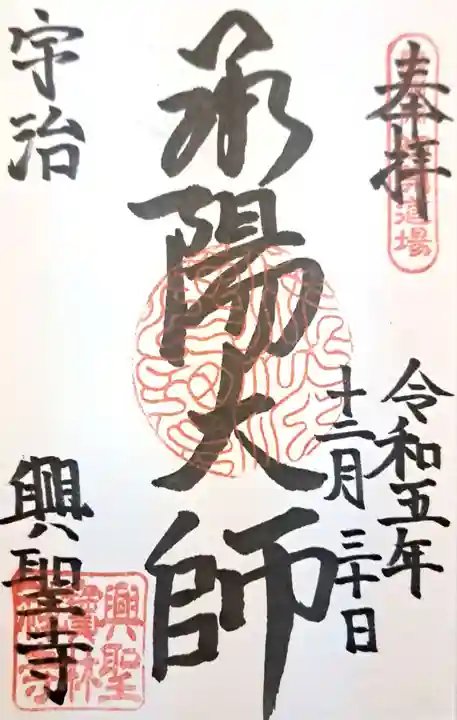 奉拝
道場
令和五年
十二月三十日
承陽大師
宇治
興聖寺
興聖